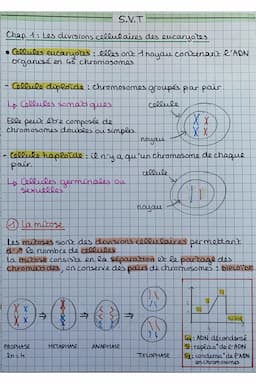 S.V.T
Chap 1: Les divisions cellulaires des eucaryotes
Cellules eucaryotes : elles ont 1 noyau contenant l'ADN
organisé en chromosomes
Cellule diploïde : chromosomes groupés par pair
↳ Cellules somatiques
cellule
Elle peut être composée de
chromosomes doubles ou simples.
noyau
Cellule haploïde : il n'y a qu'un chromosome de chaque
pair
cellule
↳ Cellules germinales ou
sexuelles
noyau
① La mitose
Les mitoses sont des divisions cellulaires permettant
d'↗ le nombre de cellules
La mitose consiste en la séparation et le partage des
chromatides, on conserve des pairs de chromosomes :
PROPHASE
METAPHASE
ANAPHASE
TELOPHASE
2n=4
: ADN décondensé
S: replica° de l'ADN
: condensa° de l'ADN
en chromosomes